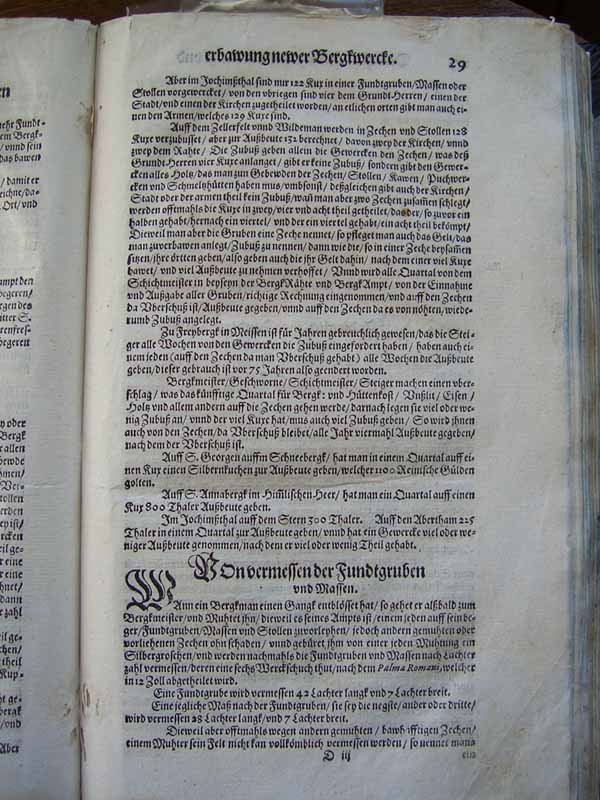 erbawung newer Bergkwercke. 29
Aber im Jochimßthal sind nur 122 Kux in einer Fundtgruben/Massen oder
Stollen vorgewercket/ von den vbriegen sind vier dem Grundt-Herren/ einen der
Stadt/vnd einen der Kirchen zugetheilet worden/an etlichen orten gibt man auch ei-
nen den Armen/welches 129 Kux sind.
Auff dem Zellerfelt vnnd Wildeman werden in Zechen vnd Stollen 128
Kuxe verzubusset/ aber zur Außbeute 132 berechnet/ davon zwey der Kirchen/vnnd
zwey dem Rahte/ Die Zubuß geben allein die Gewercken den Zechen/ was deß
Grundt-Herren vier Kuxe anlanget/ gibt er keine Zubuß/ sondern gibt den Gewer-
cken alles Holtz/das man zum Gebewden der Zechen/ Stollen/ Kawen/ Puchwer-
cken vnd Schmeltzhütten haben mus/vmbsonst/ deßgleichen gibt auch der Kirchen/
Stadt oder der armen theil kein Zubuß/wañ man aber zwo Zechen zusam̃en schlegt/
werden offtmahls die Kuxe in zwey/vier vnd acht theil getheilet/das der/ so zuvor ein
halben gehabt/hernach ein viertel/ vnd der ein viertel gehabt/ein acht theil bekömpt/
Dieweil man aber die Gruben eine Zeche nennet/ so pfleget man auch das Gelt/das
man zuverbawen anlegt/Zubuß zu nennen/ dann wie die/ so in einer Zeche beysam̃en
sitzen/ihre örtten geben/also geben auch die jhr Gelt dahin/ nach dem einer viel Kuxe
bawet/ vnd viel Außbeute zu nehmen verhoffet/ Vnnd wird alle Quartal von dem
Schichtmeister in beyseyn der BergkRähte vnd BergkAmpt/ von der Einnahme
vnd Außgabe aller Gruben/richtige Rechnung eingenommen/vnd auff den Zechen
da Vberschuß ist/Außbeute gegeben/vnnd auff den Zechen da es von nöhten/wiede-
rumb Zubuß angelegt.
Zu Freybergk in Meissen ist für Jahren gebreuchlich gewesen/das die Stei-
ger alle Wochen von den Gewercken die Zubuß eingefordert haben/ haben auch ei-
nem jeden (auff den Zechen da man Vberschuß gehabt) alle Wochen die Außbeute
geben/dieser gebrauch ist vor 75 Jahren also geendert worden.
Bergkmeister/Geschworne/Schichtmeister/Steiger machen einen vber-
schlag/ was das künfftige Quartal für Bergk- vnd Hüttenkost/ Vnßlit/ Eisen/
Holtz vnd allem andern auff die Zechen gehen werde/darnach legen sie viel oder we-
nig Zubuß an/ vnnd der viel Kuxe hat/mus auch viel Zubuß geben/ So wird ihnen
auch von den Zechen/da Vberschuß bleibet/alle Jahr viermahl Außbeute gegeben/
nach dem der Vberschuß ist.
Auff S. Georgen auffm Schneebergk/ hat man in einem Quartal auff ei-
nen Kux einen Silbernkuchen zur Außbeute geben/welcher 1100 Reinische Gülden
golten.
Auff S. Annabergk im Him̃lischen-Heer/ hat man ein Quartal auff einen
Kux 800 Thaler Außbeute geben.
Im Jochimßthal auff dem Stern 300 Thaler. Auff den Abertham 225
Thaler in einem Quartal zur Außbeute geben/ vnnd hat ein Gewercke viel oder we-
niger Außbeute genommen/nach dem er viel oder wenig Theil gehabt.
VOn vermessen der Fundtgruben
vnd Massen.
WAnn ein Bergkman einen Gangk entblösset hat/ so gehet er alßbald zum
Bergkmeister/vnd Muhtet ihn/ dieweil es seines Ampts ist/ einem jeden auff sein be-
ger/Fundtgruben/Massen vnd Stollen zuvorleyhen/ jedoch andern gemuhten oder
vorliehenen Zechen ohn schaden/ vnnd gebüret jhm von einer jeden Muhtung ein
Silbergroschen/vnd werden nachmahls die Fundtgruben vnd Massen nach Lachter
zahl vermessen/deren eine sechs Werckschuch thut/nach dem Palma Romani, welcher
in 12 Zoll abgetheilet wird.
Eine Fundtgrube wird vermessen 42 Lachter langk vnd 7 Lachter breit.
Eine jegliche Maß nach der Fundtgruben/ sie sey die negste/ander oder dritte/
wird vermessen 28 Lachter langk/vnd 7 Lachter breit.
Dieweil aber offtmahls wegen andern gemuhten/ bawhafftigen Zechen/
einem Muhter sein Felt nicht kan vollkömblich vermessen werden/ so nennet mans
D iij ein